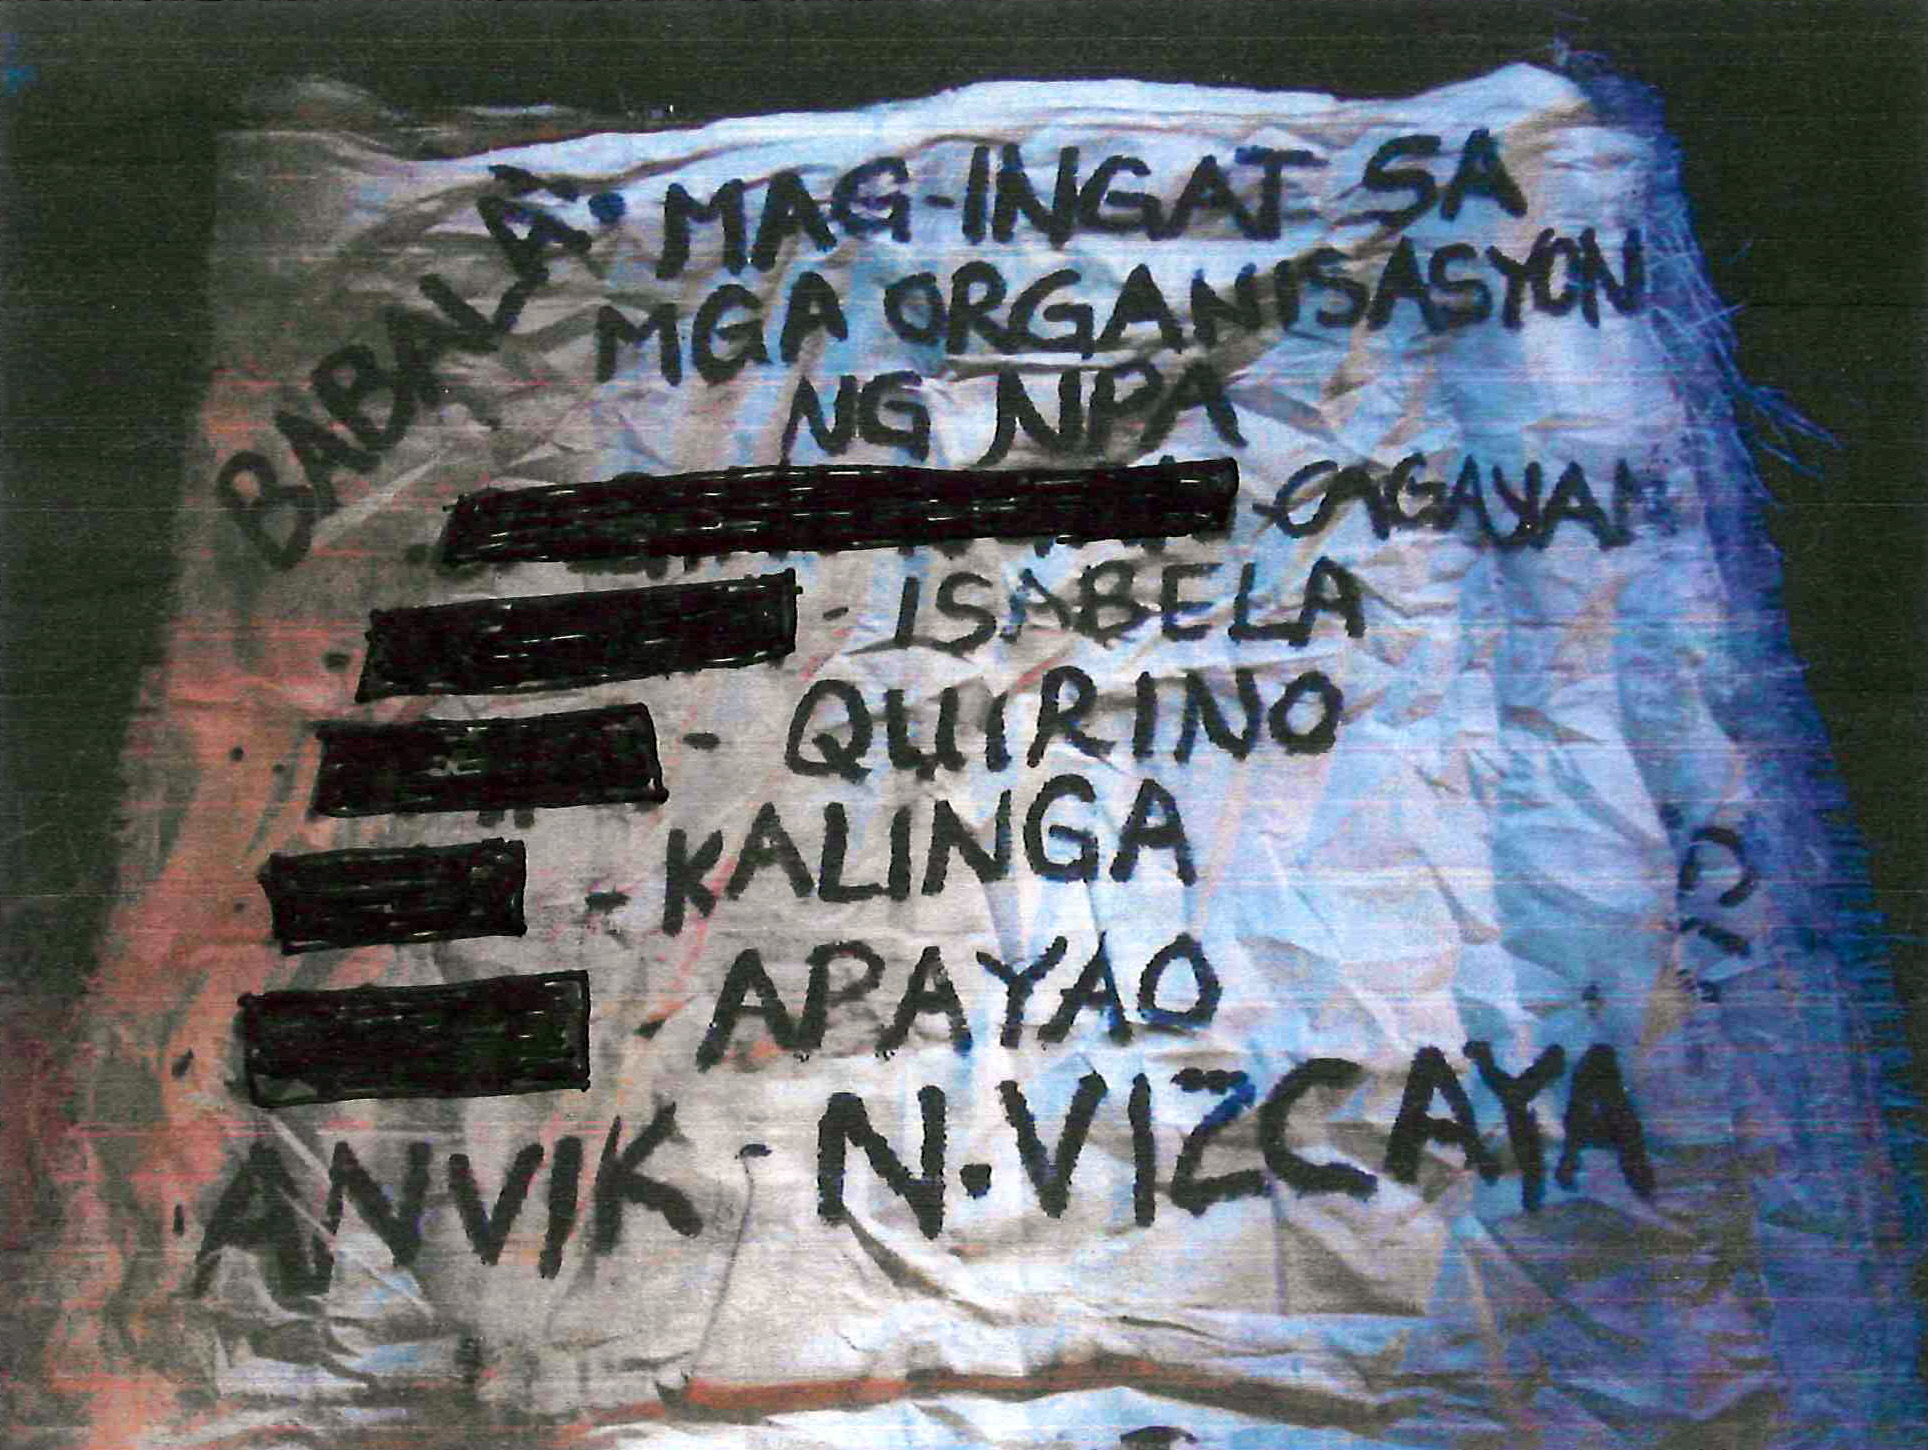 BABALA: MAG-INGAT SA
MGA ORGANISASYON
NG NPA
- CAGAYAN
- ISABELA
- QUIRINO
- KALINGA
- APAYAO
ANVIK - N. VIZCAYA